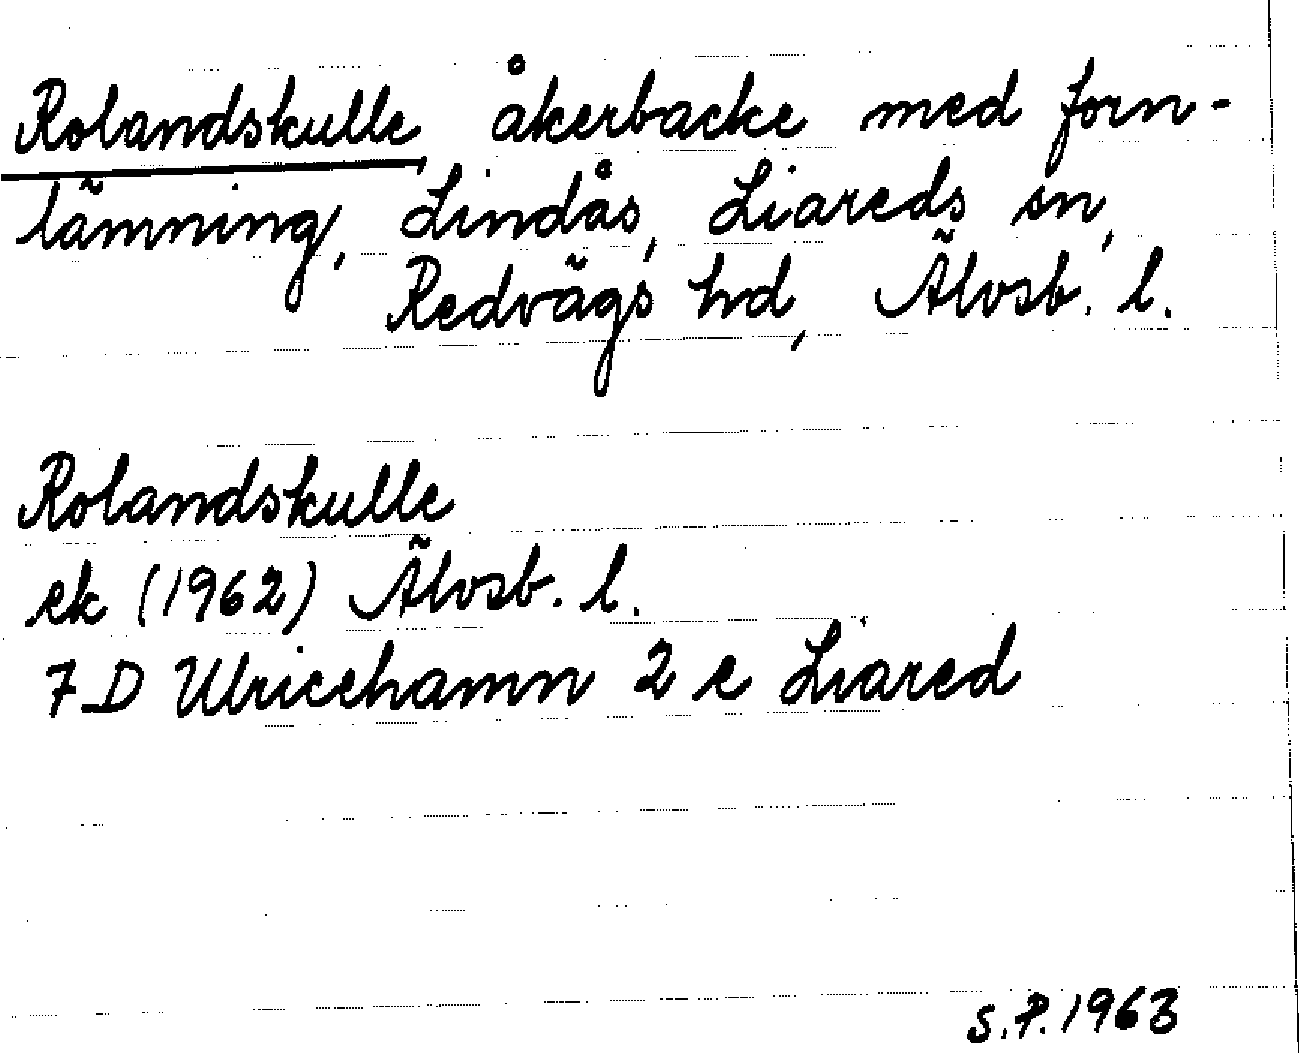 Rolandskulle, åkerbacke med forn-
lämning, Lindås, Liareds sn,
Redvägs hd, Älvsb. l.
Rolandskulle
ek (1962) Älvsb. l.
7D Ulricehamn 2 e Liared
S.P. 1963